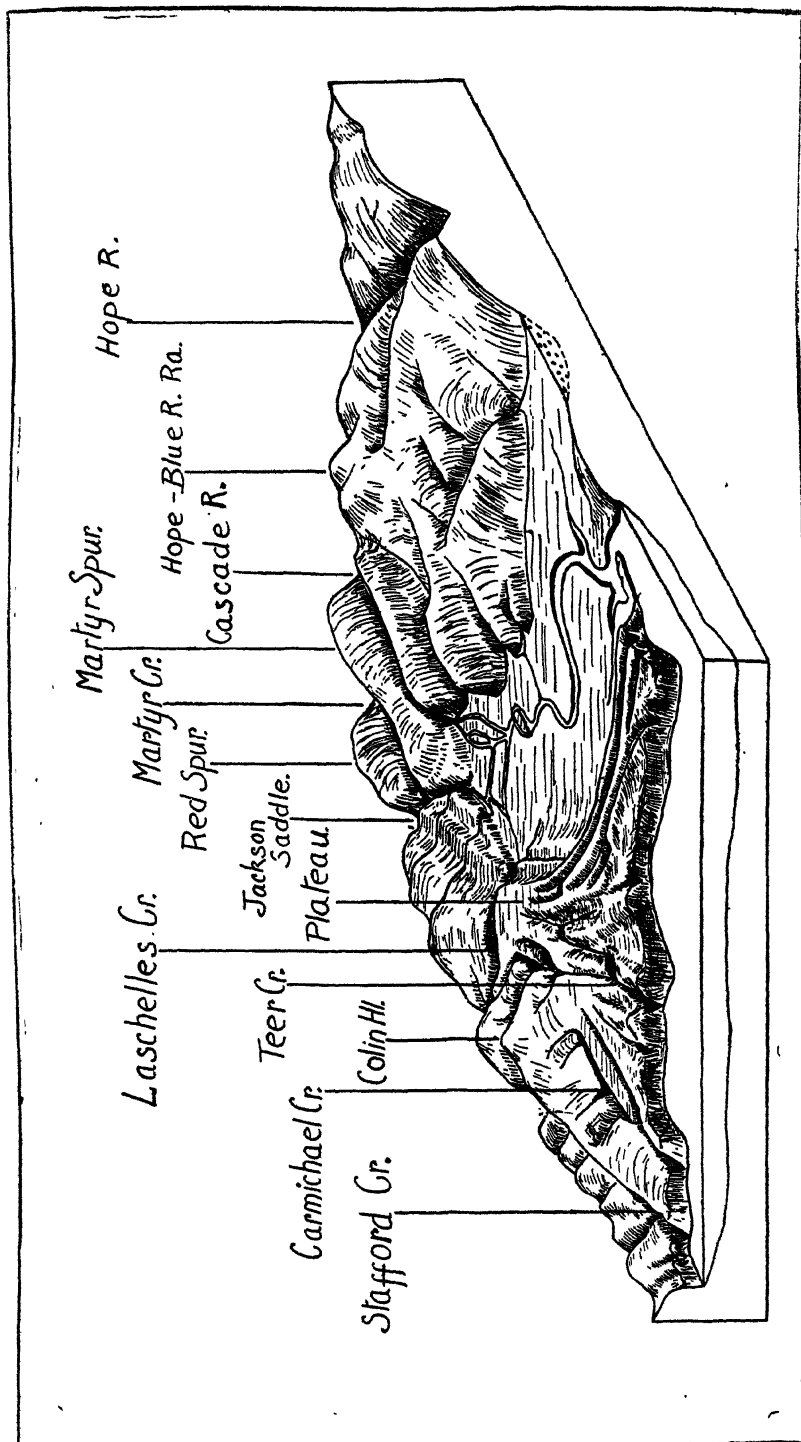 Stafford Cr.
Carmichael Cr.
Colin Hl.
Teer Cr.
Laschelles. Cr.
Plateau.
Jackson
Saddle.
Red Spur.
Martyr Cr.
Martyr Spur.
Cascade R.
Hope-Blue R. Ra.
Hope R.